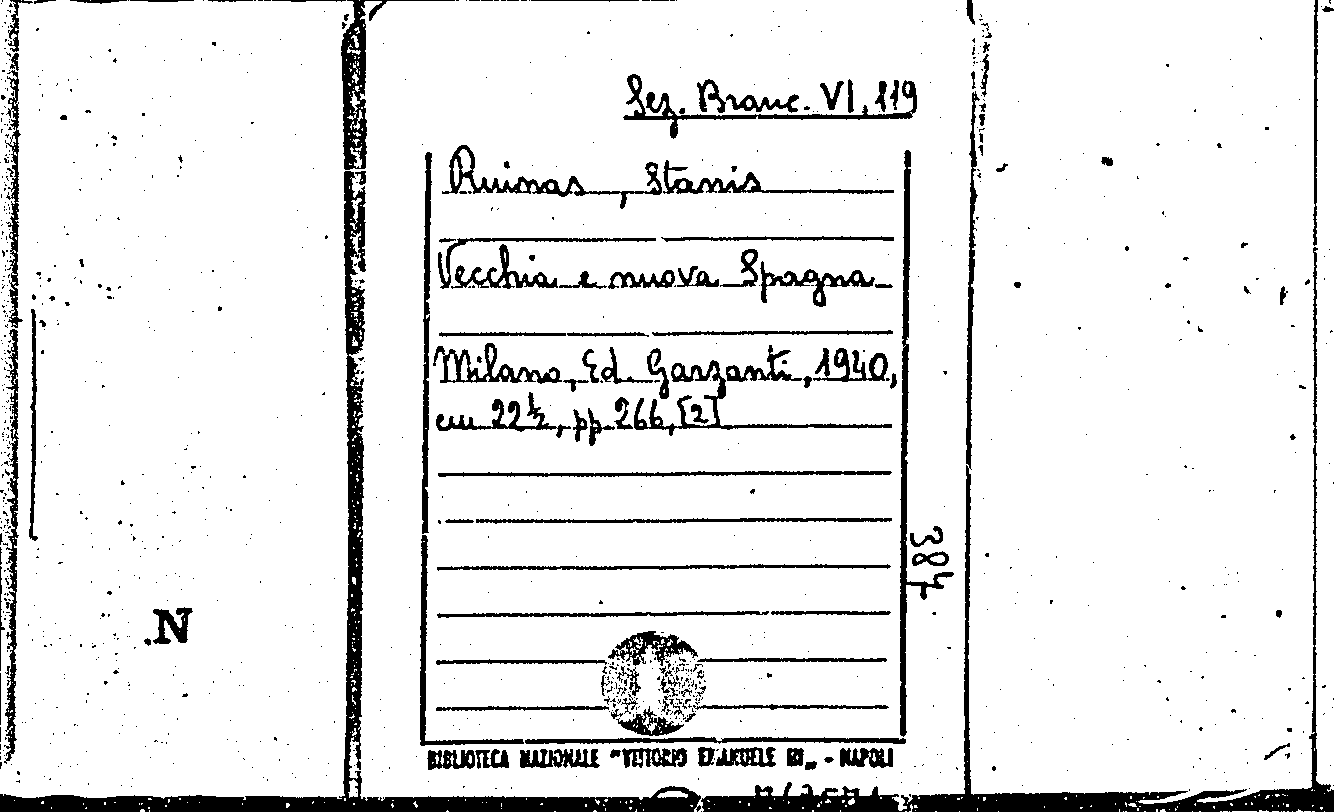 Sez. Branc. VI. 119
Ruinas, Stanis
Vecchia e nuova Spagna
Milano, Ed. Garzanti, 1940,
cm 22½, pp. 266, [2]
384
.N
BIBLIOTECA NAZIONALE "VITTORIO EMANUELE III„ - NAPOLI